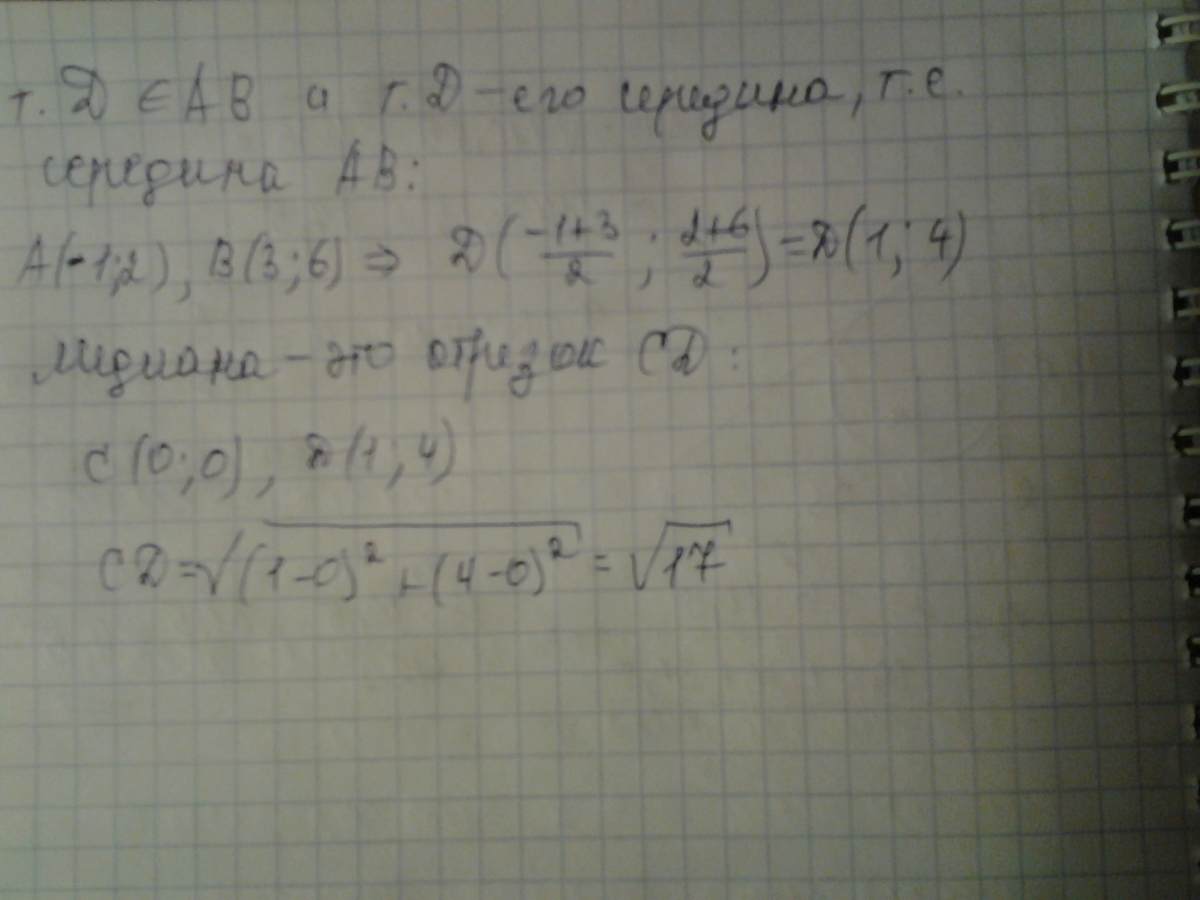 т. D ∈ AB и т. D – его середина, т.е.
середина AB:
A(-1;2), B(3;6) ⇒ D(\frac{-1+3}{2}; \frac{2+6}{2}) = D(1; 4)
медиана – это отрезок CD:
C(0;0), D(1;4)
CD = √((1-0)² + (4-0)²) = √17